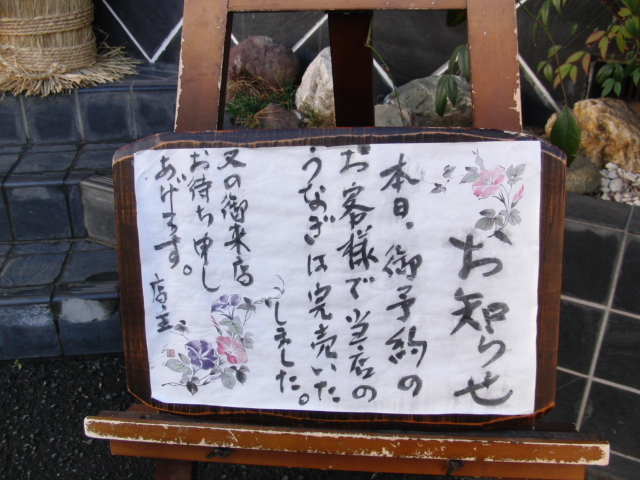 お知らせ
本日、御予約の
お客様で当店の
うなぎは完売いた
しました。
又の御来店
お待ち申し
あげます。
店主